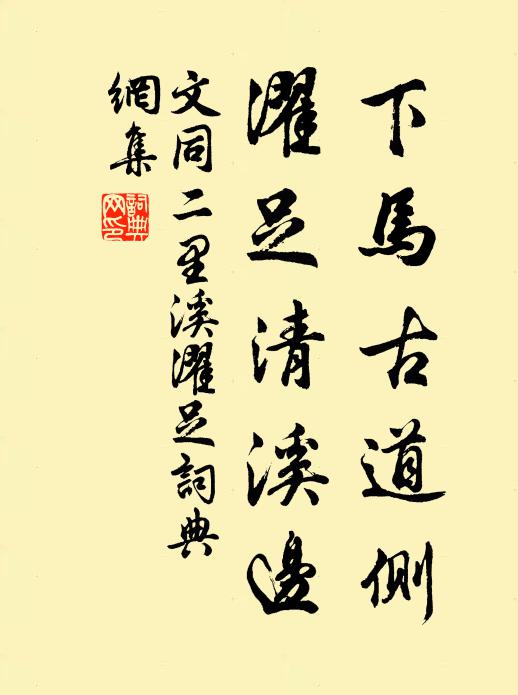 下馬古道側
濯足清溪邊
文同二里溪濯足詞典
網集
詞典
网印